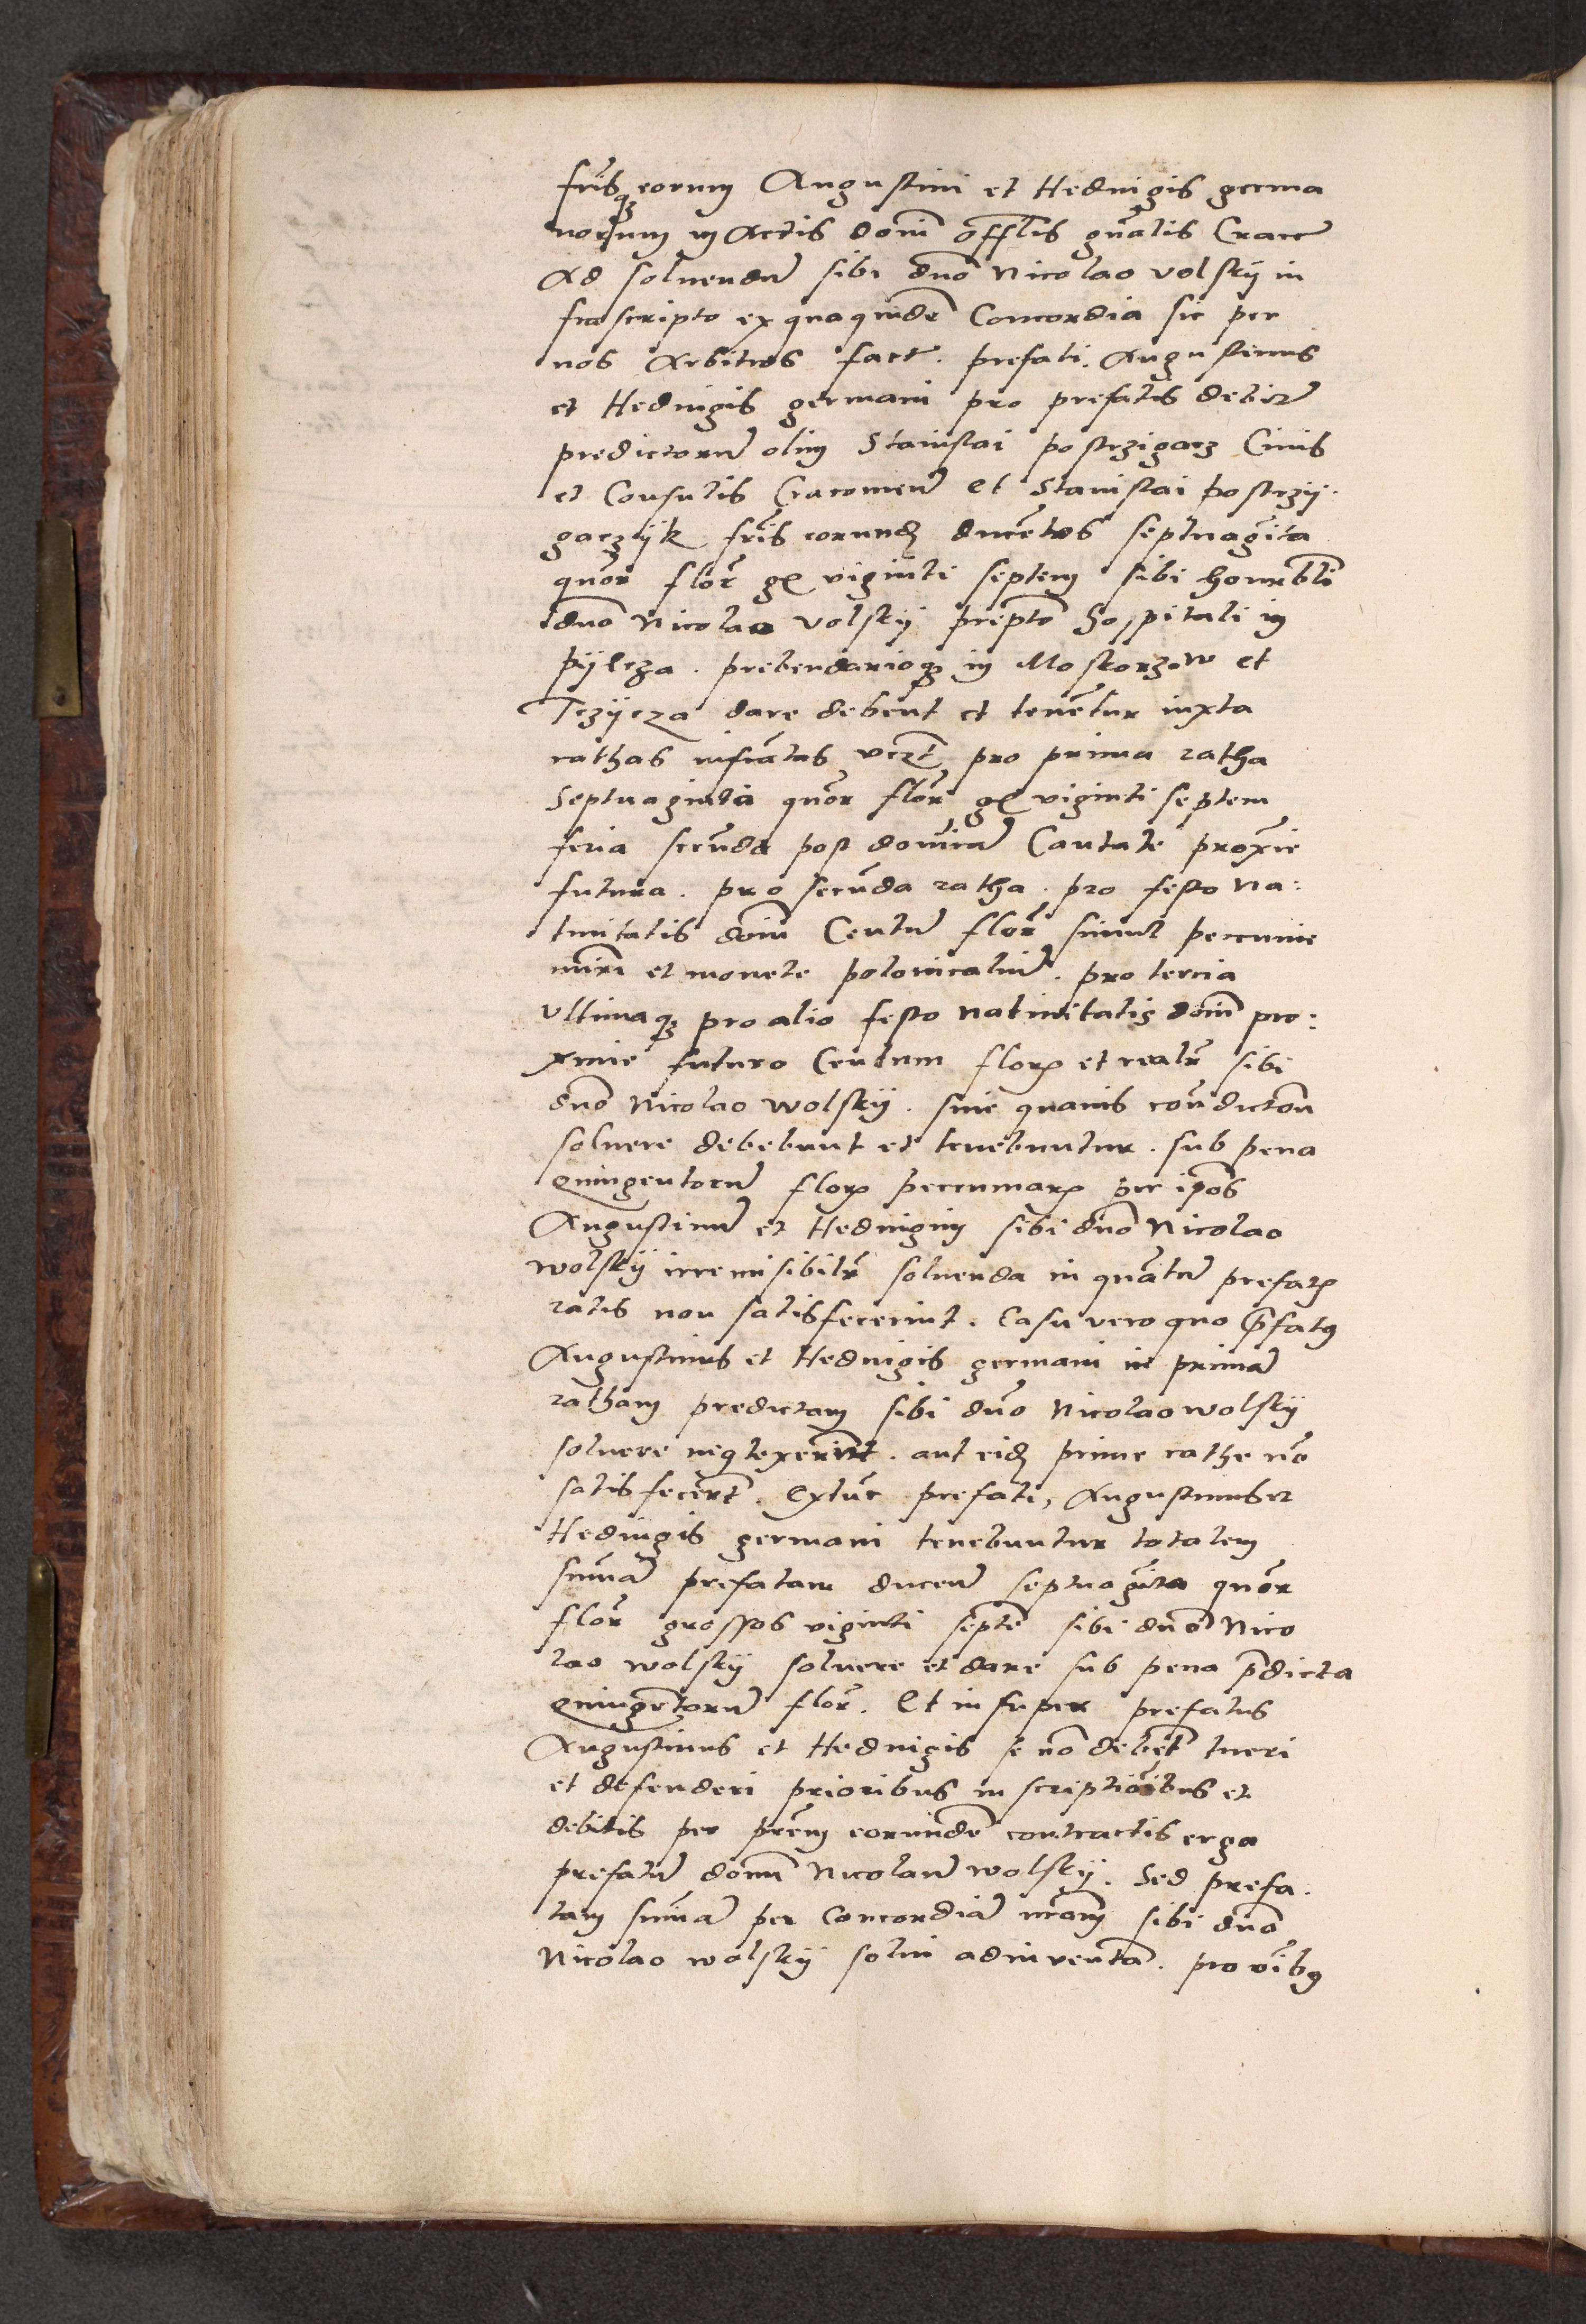 frisqz eorum Augustini et Hedvigis germa
norum in Actis domi offlis gnalis Cracc
Ad soluendu sibi duo Nicolao volskij in
frascripto ex quaquide Concordia sic per
nos Arbitros fact. prefati. Augustinus
et Hedvigis germani pro prefatis debit
predictoru olim Stanislai postrzigacz Civis
et Consulis Cracovien et Stanislai postrzij.
gaczijk fris eorund ducetos septuagita
quor flor gl viginti septem sibi honorbli
duo Nicolao volskij prepto hospitali in
pijlcza. prebendarioqz in Moskorzow et
Tczijcza dare debent et tenetur iuxta
rathas infratas vczt pro prima ratha
Septuaginta quor flor gl viginti septem
feria secuda post donica Cantate proxie
futura. pro secuda ratha. pro festo Na:
tiuitatis domi Centu flor simul peccunie
mri et monete polonicaliu. pro tercia
Vltimaqz pro alio festo Natiuitatis domi pro:
xime futuro Centum florum et realr sibi
duo Nicolao wolskij. sine quauis condictoni
soluere debebunt et tenebuntur. sub pena
quingentoru florum peccuniarum per ipos
Augustinu et Hedvigim sibi duo Nicolao
wolskij irremisibilr soluenda in quatu prefatrum
ratis non satisfecerint. Casu vero quo prefatus
Augustinus et Hedvigis germani in prima
ratham predictam sibi duo Nicolao wolskij
soluere neglexerint. aut eid prime rathe no
satisfecert. extuc prefati, Augustinus et
Hedvigis germani tenebuntur totalem
suma prefatam ducen septuagita quor
flor grossos viginti septe sibi duo Nico
lao wolskij soluere et dare sub pena pdicta
quingetoru flor. Et insuper prefatus
Augustinus et Hedvigis se no debet tueri
et defenderi prioribus inscriptioibus et
debitis per prem eorunde contractis erga
prefatu domu Nicolau wolskij. Sed prefa.
tam suma per Concordia nram sibi duo
Nicolao wolskij solui adinuenta. pro oibus